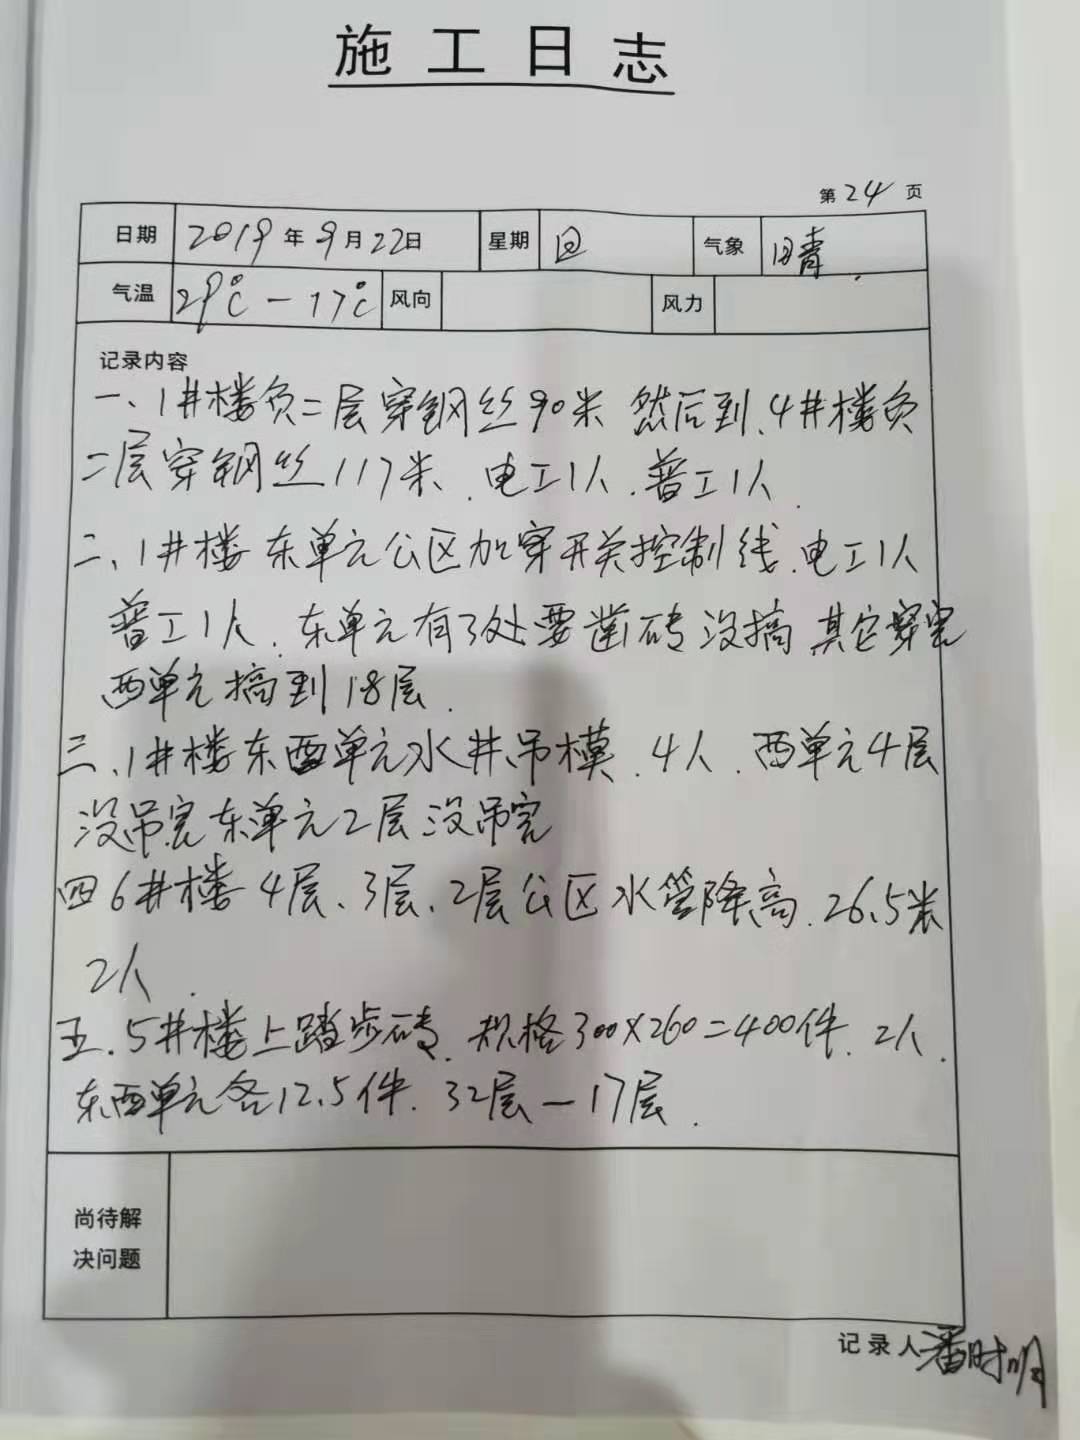 施工日志
第24页
日期 2019年9月22日 星期 日 气象 晴.
气温 29℃－17℃ 风向 风力
记录内容
一、1井楼负二层穿钢丝90米 然后到、4井楼负
二层穿钢丝117米.电工1人.普工1人
二、1井楼东单元公区加穿开关控制线.电工1人
普工1人.东单元有3处要凿砖没搞其它穿完
西单元搞到18层.
三、1井楼东西单元水井吊模.4人.西单元4层
没吊完东单元2层没吊完
四6井楼4层、3层、2层公区水管降高.26.5米
2人.
五.5井楼上踏步砖.规格300×260=400件.2人.
东西单元各12.5件.32层－17层.
尚待解
决问题
记录人潘时明